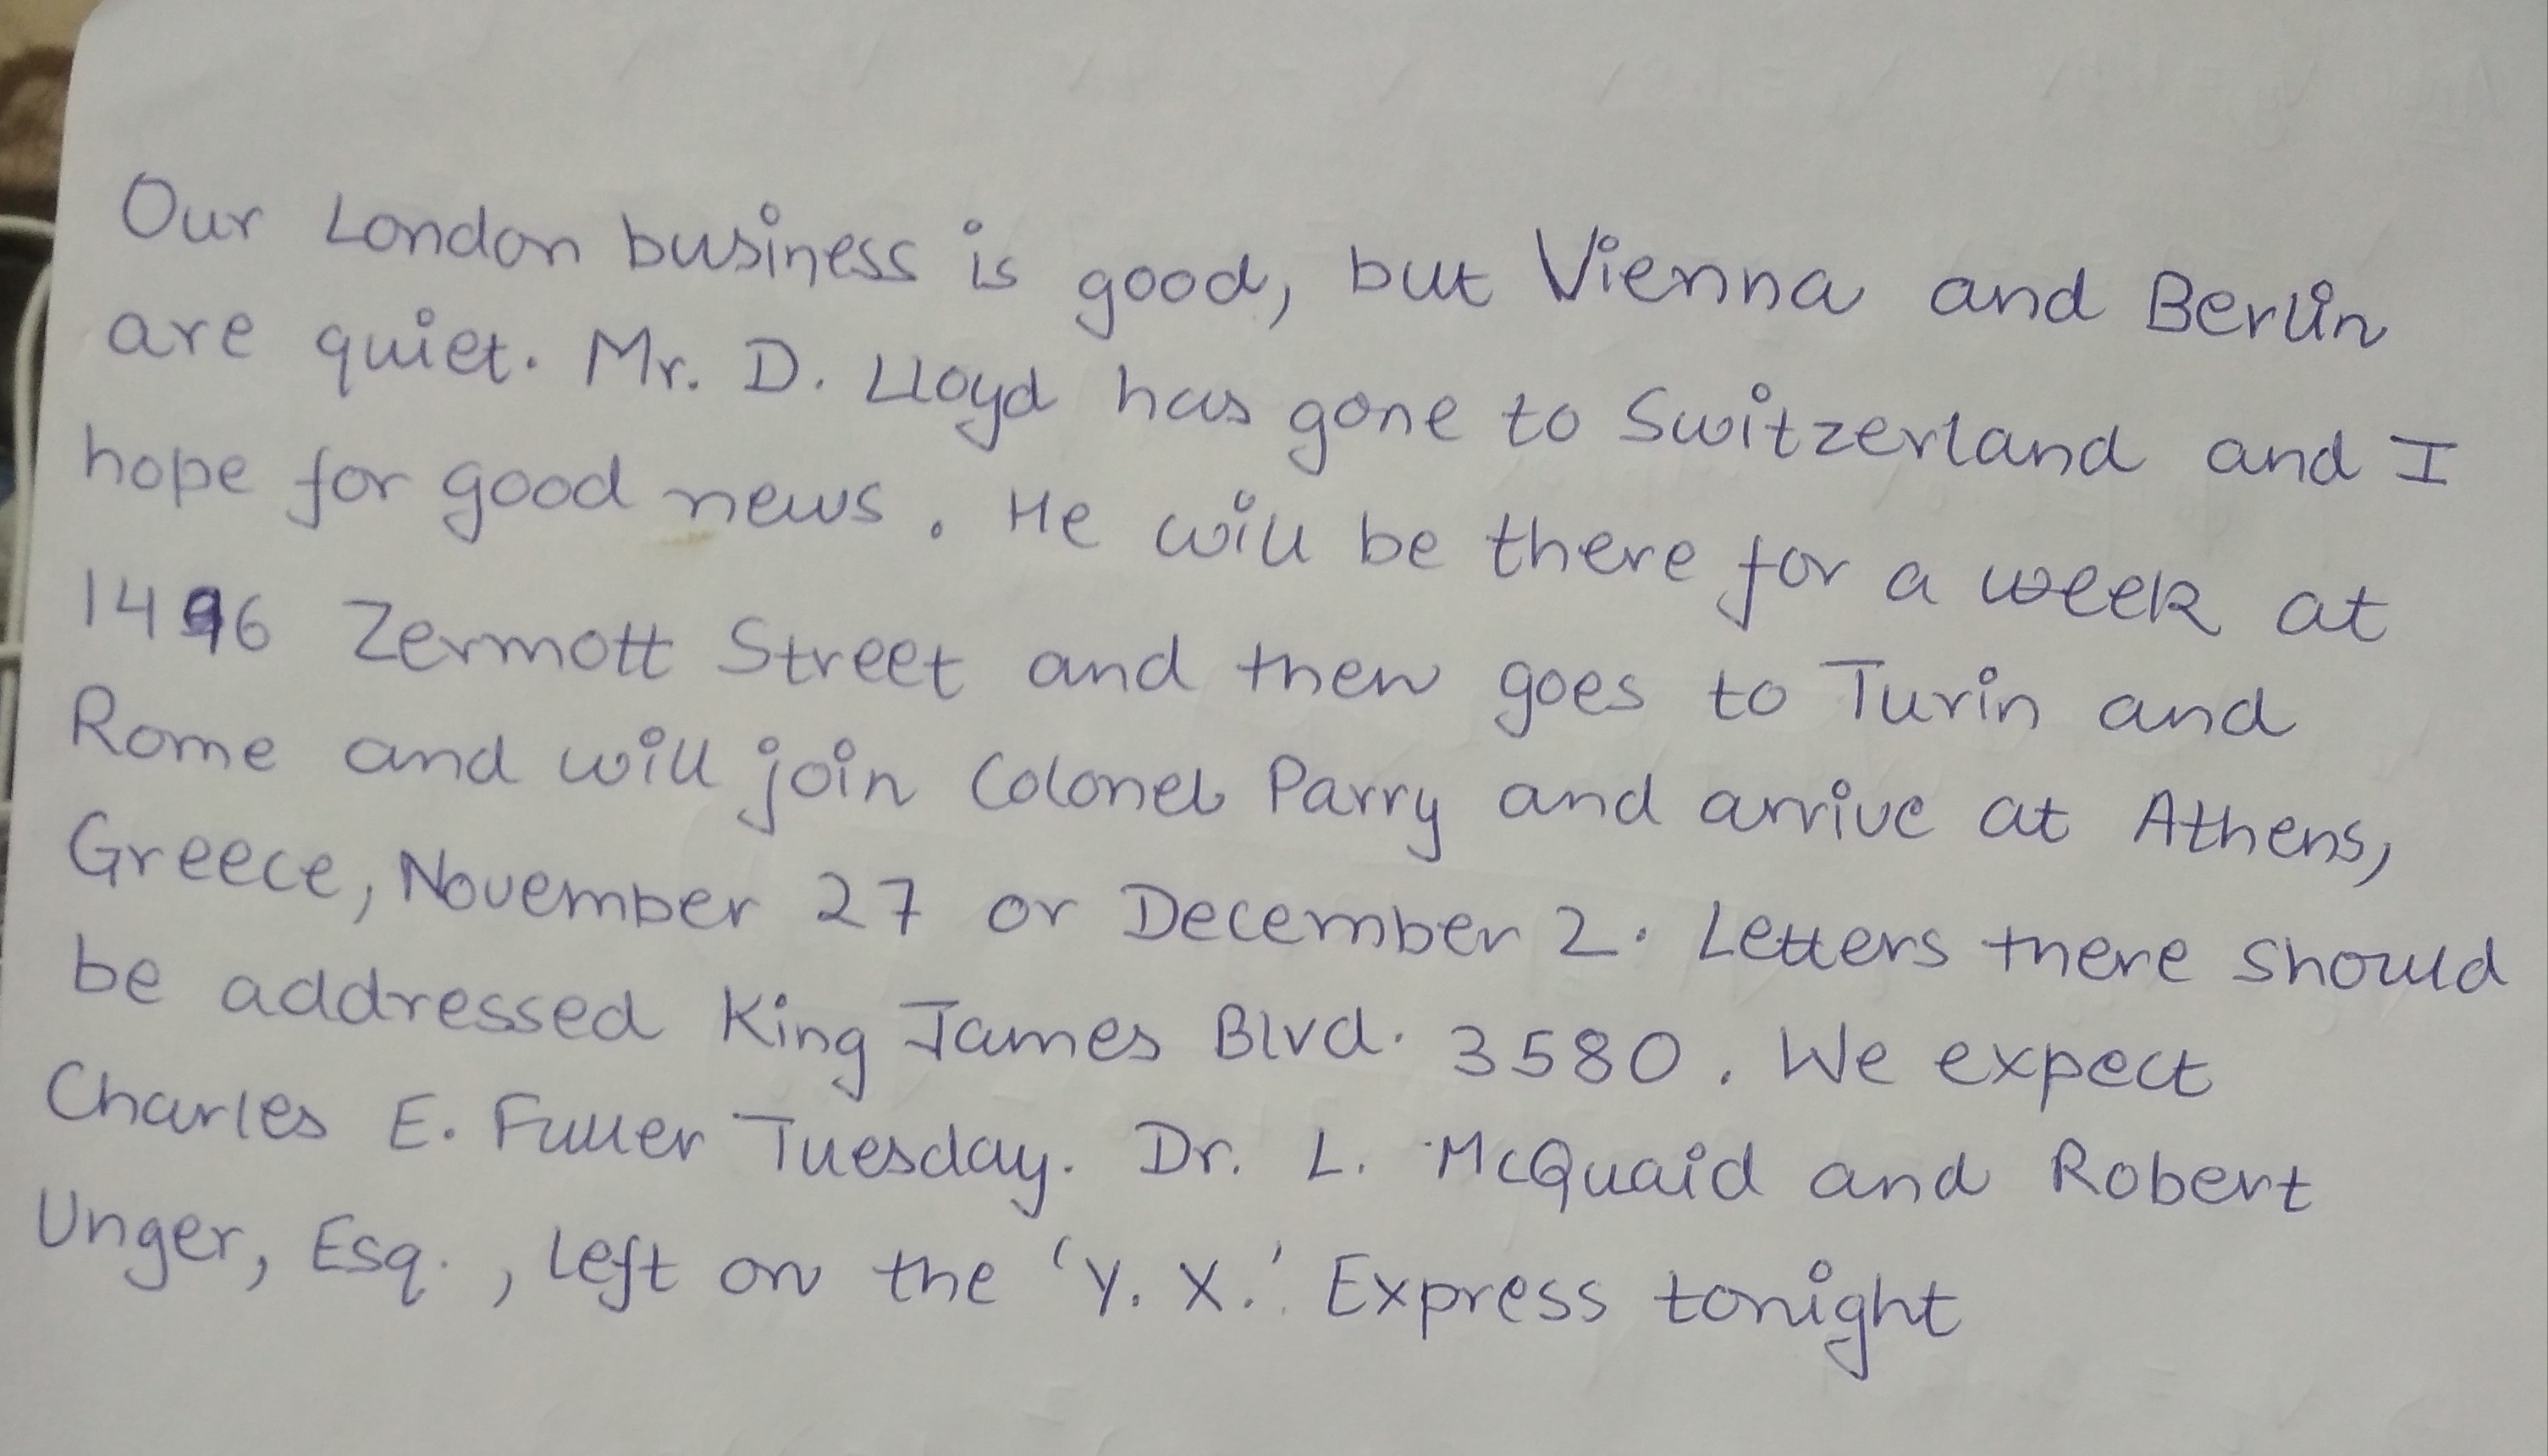 Our London business is good, but Vienna and Berlin
are quiet. Mr. D. Lloyd has gone to Switzerland and I
hope for good news. He will be there for a week at
1496 Zermott Street and then goes to Turin and
Rome and will join Colonel Parry and arrive at Athens,
Greece, November 27 or December 2. Letters there should
be addressed King James Blvd. 3580. We expect
Charles E. Fuller Tuesday. Dr. L. McQuaid and Robert
Unger, Esq., left on the 'Y. X.' Express tonight